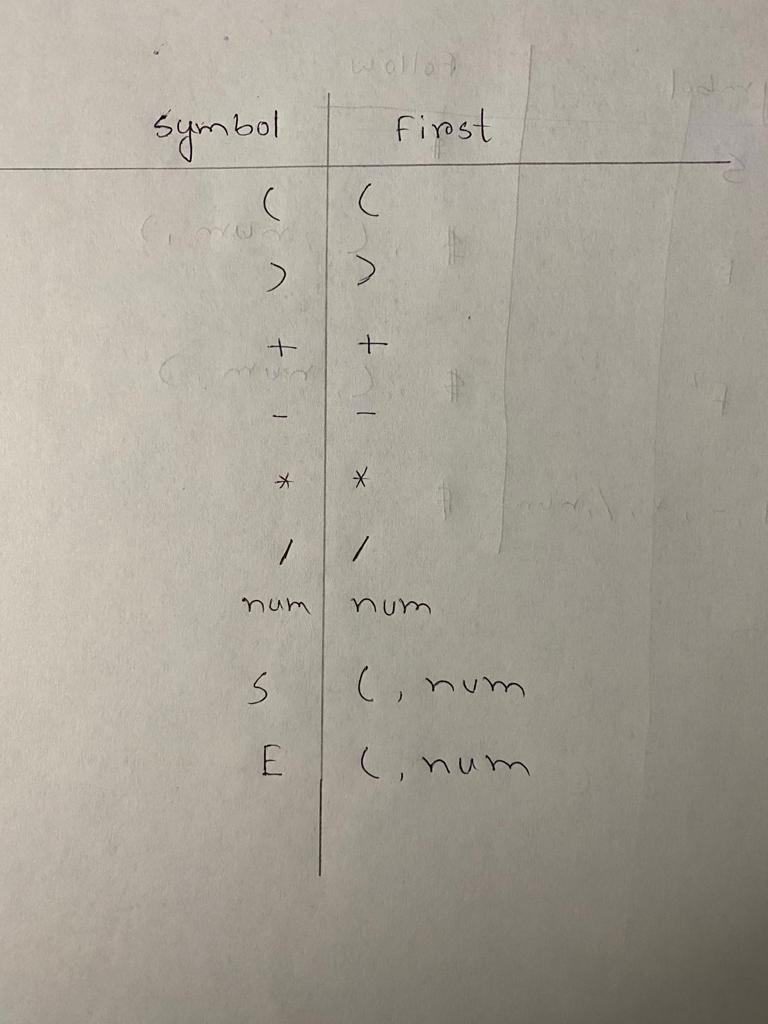 Symbol First
( (
) )
+ +
- -
* *
/ /
num num
S (, num
E (, num